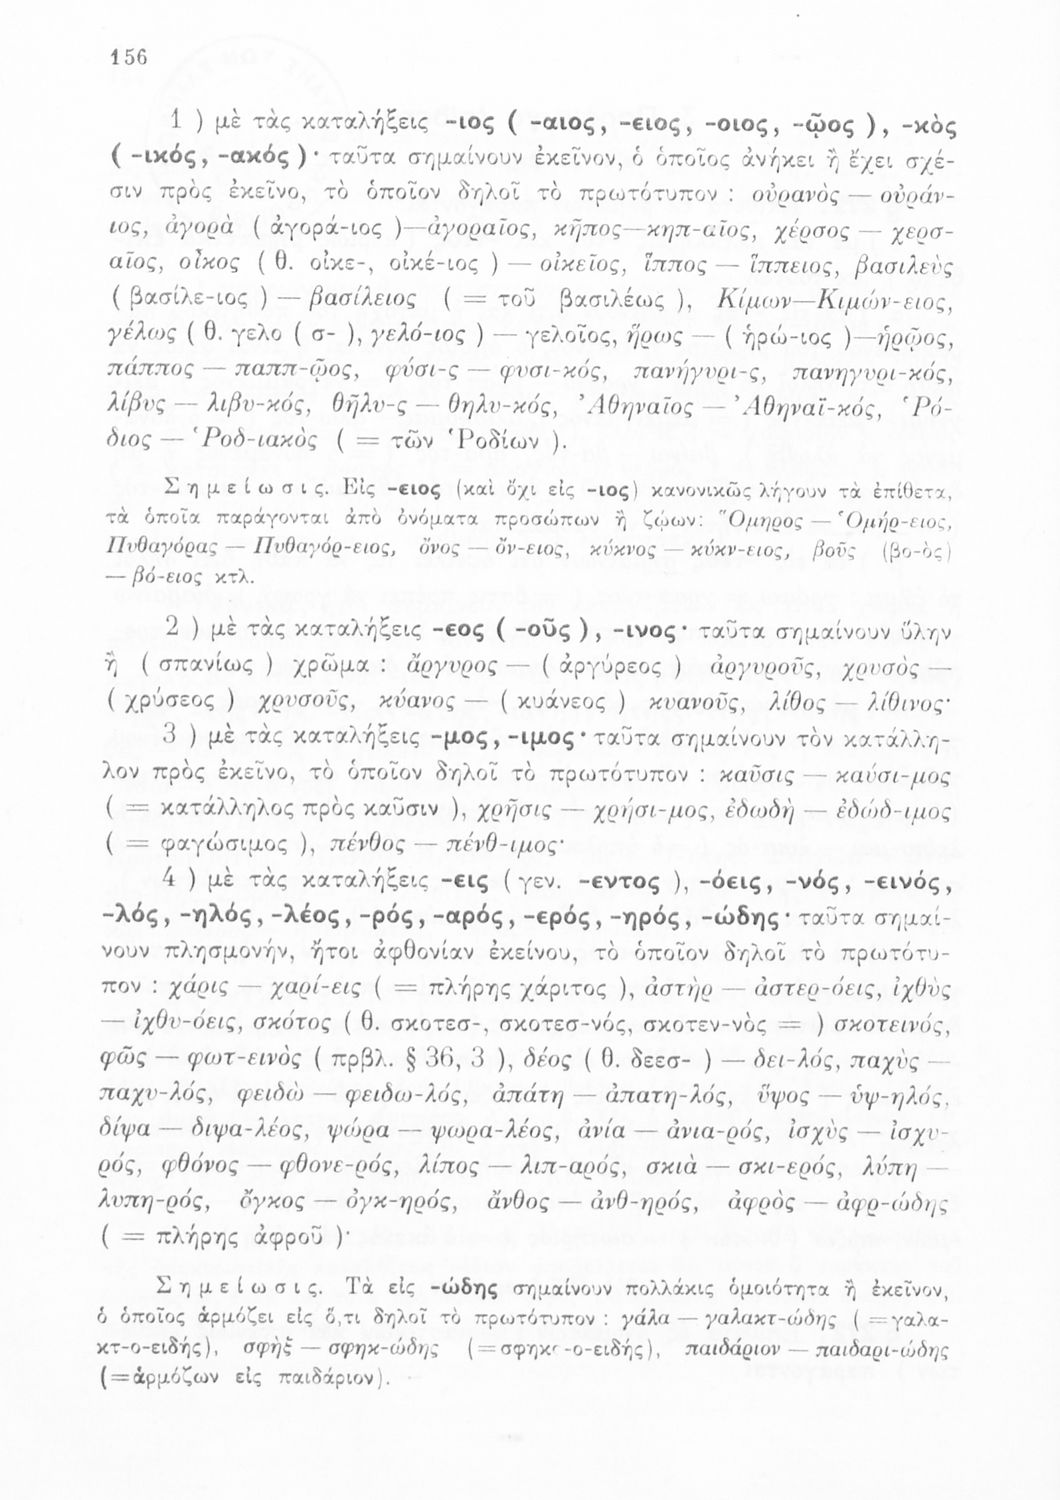 156
1 ) μὲ τὰς καταλήξεις -ιος ( -αιος, -ειος, -οιος, -ῷος ), -κὸς
( -ικός, -ακός ) · ταῦτα σημαίνουν ἐκεῖνον, ὁ ὁποῖος ἀνήκει ἢ ἔχει σχέ-
σιν πρὸς ἐκεῖνο, τὸ ὁποῖον δηλοῖ τὸ πρωτότυπον : οὐρανὸς — οὐράν-
ιος, ἀγορὰ ( ἀγορά-ιος )—ἀγοραῖος, κῆπος—κηπ-αῖος, χέρσος — χερσ-
αῖος, οἶκος ( θ. οἰκε-, οἰκέ-ιος ) — οἰκεῖος, ἵππος — ἵππειος, βασιλεὺς
( βασίλε-ιος ) — βασίλειος ( = τοῦ βασιλέως ), Κίμων—Κιμών-ειος,
γέλως ( θ. γελο ( σ- ), γελό-ιος ) — γελοῖος, ἥρως — ( ἡρώ-ιος )—ἡρῷος,
πάππος — παππ-ῷος, φύσι-ς — φυσι-κός, πανήγυρι-ς, πανηγυρι-κός,
λίβυς — λιβυ-κός, θῆλυ-ς — θηλυ-κός, Ἀθηναῖος — Ἀθηναϊ-κός, Ῥό-
διος — Ῥοδ-ιακὸς ( = τῶν Ῥοδίων ).
Σημείωσις. Εἰς -ειος (καὶ ὄχι εἰς -ιος) κανονικῶς λήγουν τὰ ἐπίθετα,
τὰ ὁποῖα παράγονται ἀπὸ ὀνόματα προσώπων ἢ ζῴων: Ὅμηρος — Ὁμήρ-ειος,
Πυθαγόρας — Πυθαγόρ-ειος, ὄνος — ὄν-ειος, κύκνος — κύκν-ειος, βοῦς (βο-ὸς)
— βό-ειος κτλ.
2 ) μὲ τὰς καταλήξεις -εος ( -οῦς ), -ινος · ταῦτα σημαίνουν ὕλην
ἢ ( σπανίως ) χρῶμα : ἄργυρος — ( ἀργύρεος ) ἀργυροῦς, χρυσὸς —
( χρύσεος ) χρυσοῦς, κύανος — ( κυάνεος ) κυανοῦς, λίθος — λίθινος·
3 ) μὲ τὰς καταλήξεις -μος, -ιμος · ταῦτα σημαίνουν τὸν κατάλλη-
λον πρὸς ἐκεῖνο, τὸ ὁποῖον δηλοῖ τὸ πρωτότυπον : καῦσις — καύσι-μος
( = κατάλληλος πρὸς καῦσιν ), χρῆσις — χρήσι-μος, ἐδωδὴ — ἐδώδ-ιμος
( = φαγώσιμος ), πένθος — πένθ-ιμος·
4 ) μὲ τὰς καταλήξεις -εις ( γεν. -εντος ), -όεις, -νός, -εινός,
-λός, -ηλός, -λέος, -ρός, -αρός, -ερός, -ηρός, -ώδης · ταῦτα σημαί-
νουν πλησμονήν, ἤτοι ἀφθονίαν ἐκείνου, τὸ ὁποῖον δηλοῖ τὸ πρωτότυ-
πον : χάρις — χαρί-εις ( = πλήρης χάριτος ), ἀστὴρ — ἀστερ-όεις, ἰχθὺς
— ἰχθυ-όεις, σκότος ( θ. σκοτεσ-, σκοτεσ-νός, σκοτεν-νὸς = ) σκοτεινός,
φῶς — φωτ-εινὸς ( πρβλ. § 36, 3 ), δέος ( θ. δεεσ- ) — δει-λός, παχὺς —
παχυ-λός, φειδὼ — φειδω-λός, ἀπάτη — ἀπατη-λός, ὕψος — ὑψ-ηλός,
δίψα — διψα-λέος, ψώρα — ψωρα-λέος, ἀνία — ἀνια-ρός, ἰσχὺς — ἰσχυ-
ρός, φθόνος — φθονε-ρός, λίπος — λιπ-αρός, σκιὰ — σκι-ερός, λύπη —
λυπη-ρός, ὄγκος — ὀγκ-ηρός, ἄνθος — ἀνθ-ηρός, ἀφρὸς — ἀφρ-ώδης
( = πλήρης ἀφροῦ )·
Σημείωσις. Τὰ εἰς -ώδης σημαίνουν πολλάκις ὁμοιότητα ἢ ἐκεῖνον,
ὁ ὁποῖος ἁρμόζει εἰς ὅ,τι δηλοῖ τὸ πρωτότυπον : γάλα — γαλακτ-ώδης ( = γαλα-
κτ-ο-ειδής), σφὴξ — σφηκ-ώδης (= σφηκ-ο-ειδής), παιδάριον — παιδαρι-ώδης
(=ἁρμόζων εἰς παιδάριον).